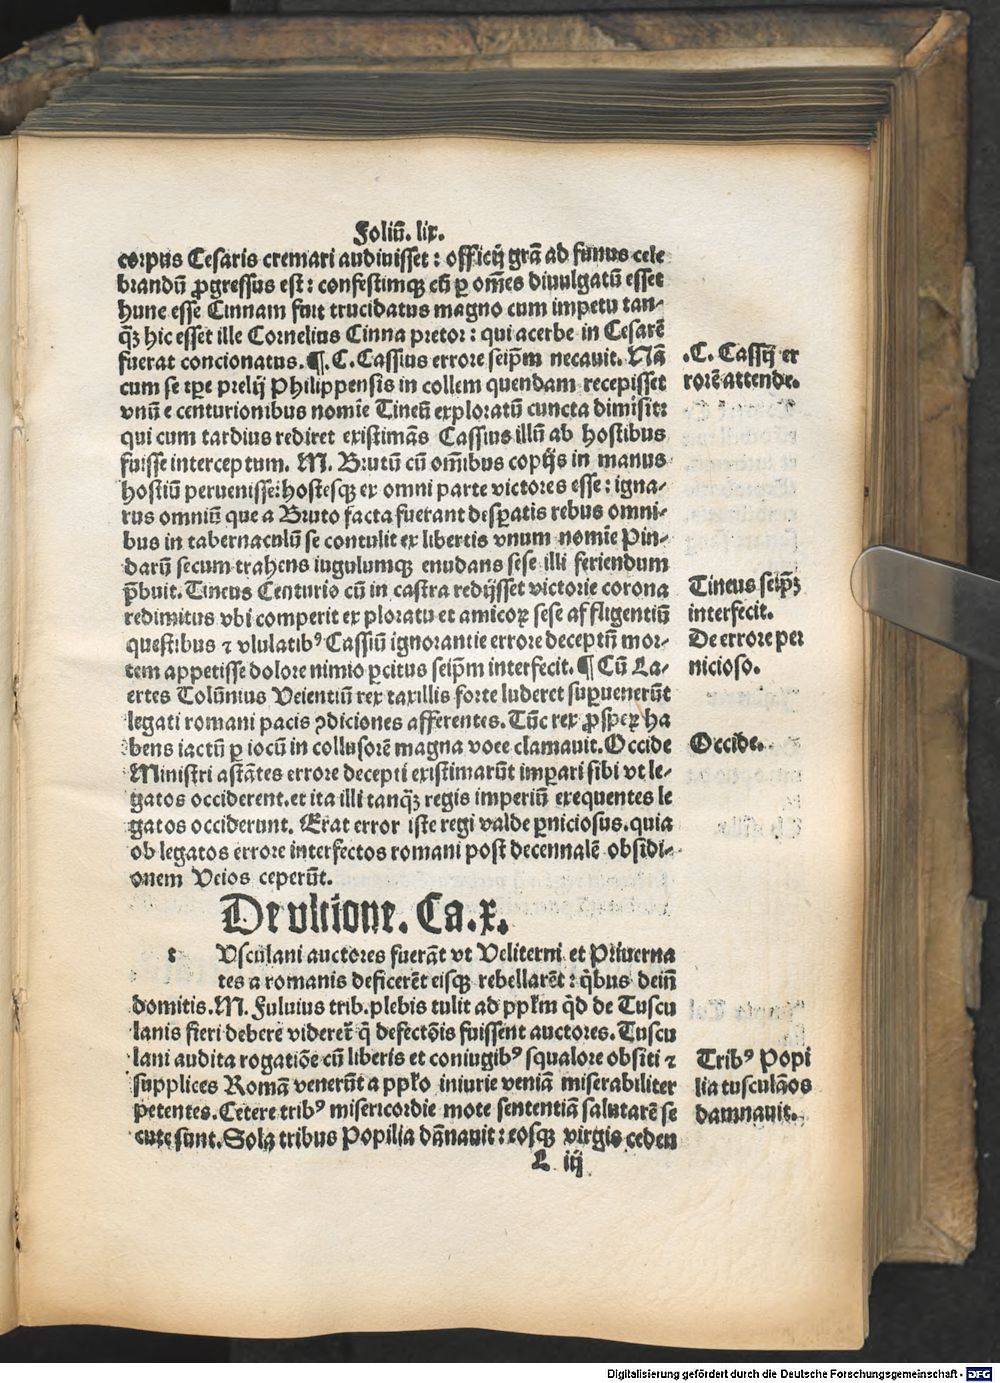 Foliũ. lix.
corpus Cesaris cremari audiuisset: officij grã ad funus cele
brandũ ꝓgressus est: confestimqꝫ cũ ꝑ om̃es diuulgatũ esset
hunc esse Cinnam fuit trucidatus magno cum impetu tan-
q̃ꝫ hic esset ille Cornelius Cinna pretor: qui acerbe in Cesarẽ
fuerat concionatus. ¶. C. Cassius errore seip̃m necauit. Nã
cum se tpe prelij Philippensis in collem quendam recepisset
vnũ e centurionibus nomĩe Tineũ exploratũ cuncta dimisit:
qui cum tardius rediret existimãs Cassius illũ ab hostibus
fuisse interceptum. M. Brutũ cũ om̃ibus copijs in manus
hostiũ peruenisse: hostesqꝫ ex omni parte victores esse: igna-
rus omniũ que a Bruto facta fuerant desꝑatis rebus omni-
bus in tabernaculũ se contulit ex libertis vnum nomĩe Pin-
darũ secum trahens iugulumqꝫ enudans sese illi feriendum
p̃buit. Tineus Centurio cũ in castra redijsset victorie corona
redimitus vbi comperit ex ploratu et amicoꝝ sese affligentiũ
questibus ⁊ vlulatibꝰ Cassiũ ignorantie errore deceptũ mor-
tem appetisse dolore nimio ꝑcitus seip̃m interfecit. ¶ Cũ La-
ertes Tolũnius Veientiũ rex taxillis forte luderet suꝑuenerũt
legati romani pacis ꝯdiciones afferentes. Tũc rex ꝓspeꝝ ha
bens iactũ ꝑ iocũ in collusorẽ magna voce clamauit. Occide
Ministri astãtes errore decepti existimarũt imꝑari sibi vt le-
gatos occiderent. et ita illi tanq̃ꝫ regis imperiũ exequentes le
gatos occiderunt. Erat error iste regi valde ꝑniciosus. quia
ob legatos errore interfectos romani post decennalẽ obsidi-
onem Veios ceperũt.
De vltione. Ca. x.
t Vsculani auctores fuerãt vt Veliterni et Priuerna
tes a romanis deficerẽt eisqꝫ rebellarẽt: q̃bus dein̄
domitis. M. Fuluius trib. plebis tulit ad ppl̃m q̃d de Tuscu
lanis fieri debere videret̃ q̃ defectõis fuissent auctores. Tuscu
lani audita rogatiõe cũ liberis et coniugibꝰ squalore obsiti ⁊
supplices Romã venerũt a ppl̃o iniurie veniã miserabiliter
petentes. Cetere tribꝰ misericordie mote sententiã salutarẽ se
cute sunt. Sola tribus Popilia dãnauit: eosqꝫ virgis ceden
L iij
.C. Cassij er
rorẽ attende.
Tineus seip̃ꝫ
interfecit.
De errore per
nicioso.
Occide.
Tribꝰ Popi
lia tusculãos
damnauit.
Digitalisierung gefördert durch die Deutsche Forschungsgemeinschaft - DFG